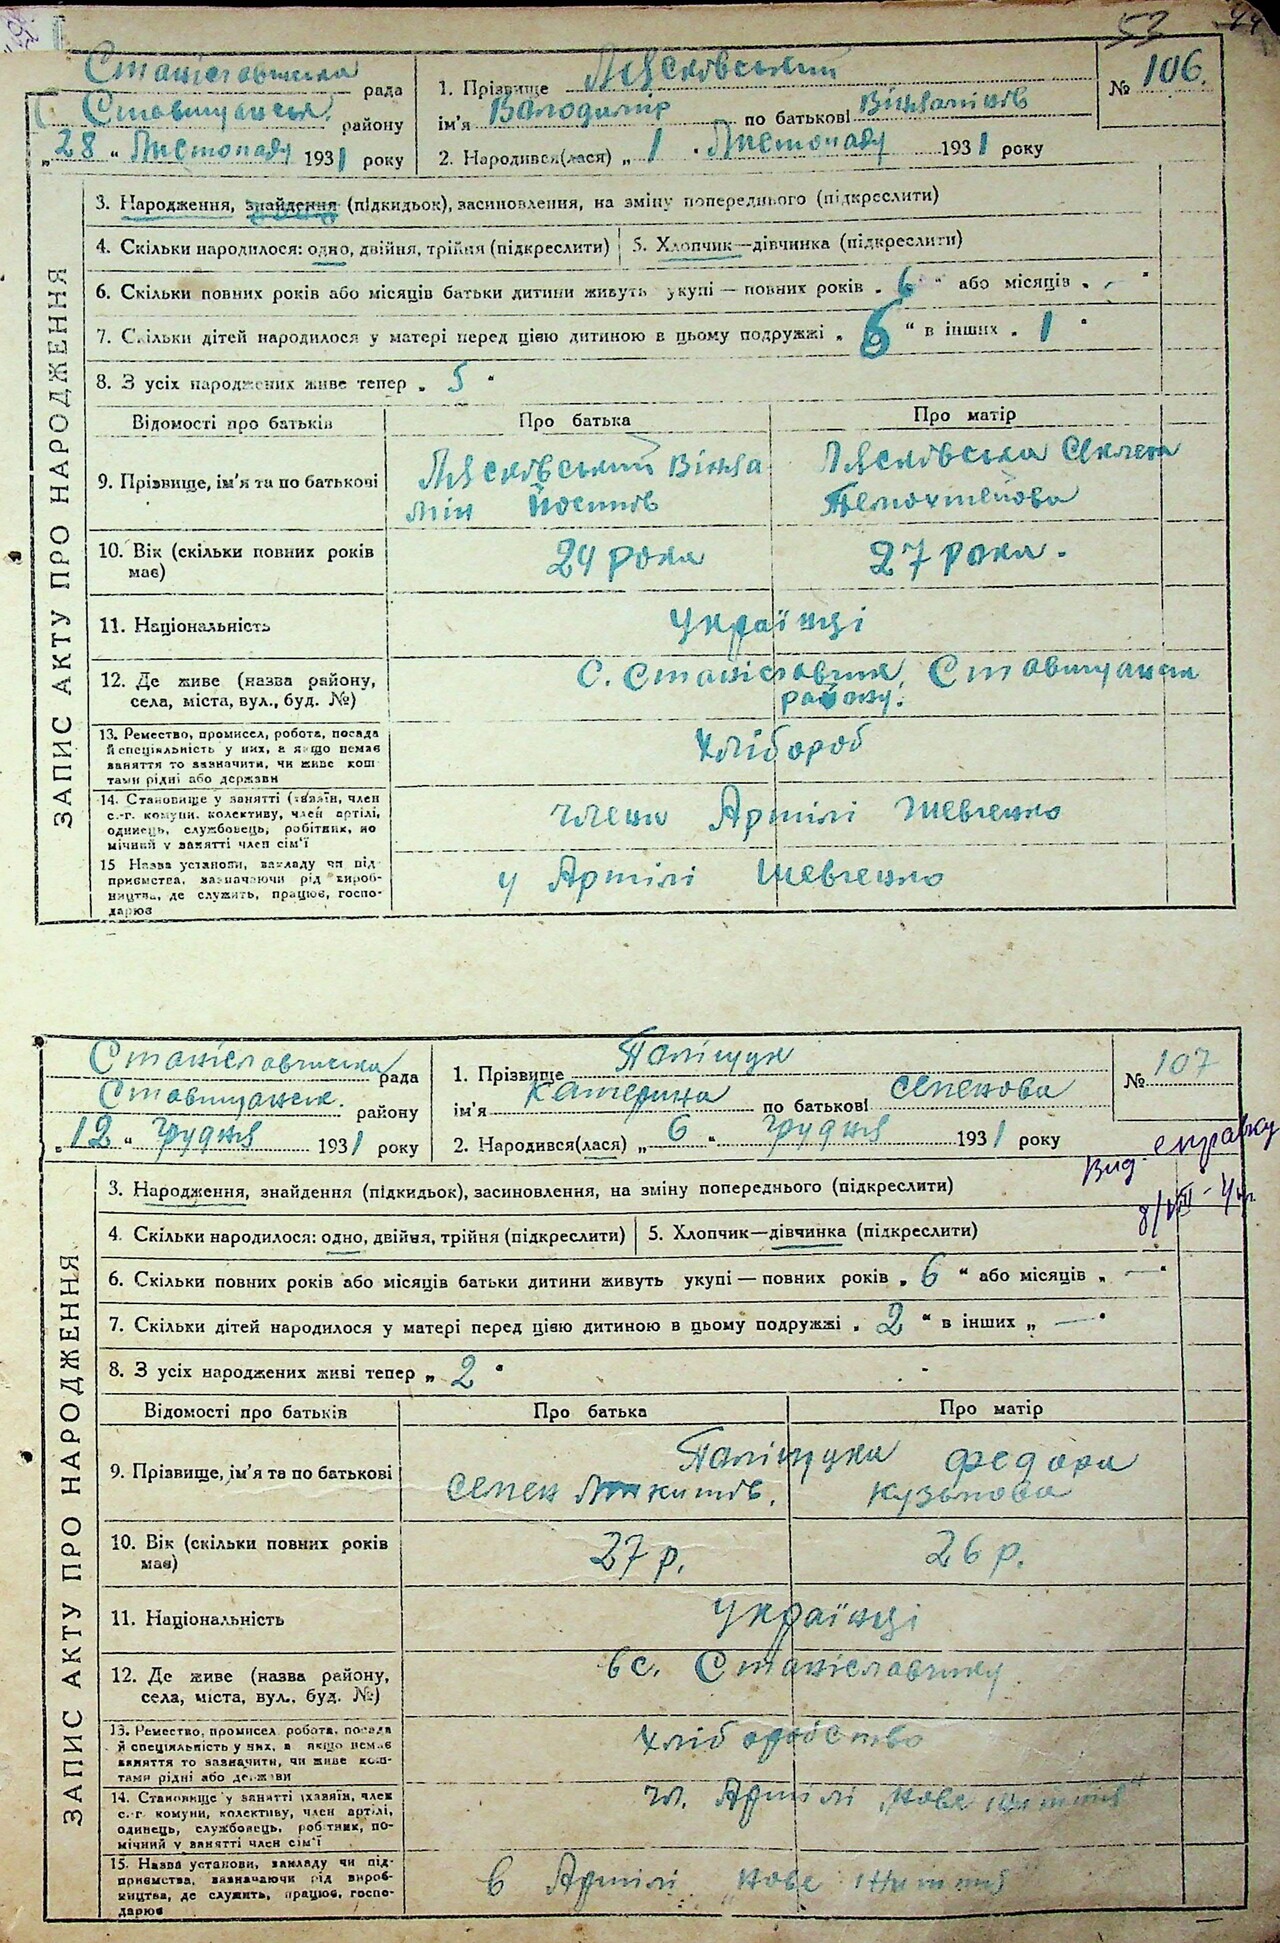 53 44
Станіславчика рада
Ставищанськ. району
„28“ Листопаду 1931 року
1. Прізвище Лясковський
ім'я Володимір по батькові Веніамінів
2. Народився(лася) „1“ Листопаду 1931 року
№ 106.
ЗАПИС АКТУ ПРО НАРОДЖЕННЯ
3. Народження, знайдення (підкидьок), засиновлення, на зміну попереднього (підкреслити)
4. Скільки народилося: одно, двійня, трійня (підкреслити) 5. Хлопчик—дівчинка (підкреслити)
6. Скільки повних років або місяців батьки дитини живуть укупі — повних років „6“ або місяців „-“
7. Скільки дітей народилося у матері перед цією дитиною в цьому подружжі „6“ в інших „1“
8. З усіх народжених живе тепер „5“
Відомості про батьків Про батька Про матір
9. Прізвище, ім'я та по батькові
Лясковський Веніа Лясковська
мін Йосипів
10. Вік (скільки повних років має)
24 роки 27 роки.
11. Національність
Українці
12. Де живе (назва району, села, міста, вул., буд. №)
С. Станіславчик, Ставищанськ
району.
13. Ремество, промисел, робота, посада й спеціяльність у них, а якщо немає заняття то зазначити, чи живе коштами рідні або держави
Хлібороб
14. Становище у занятті (хазяїн, член с.-г. комуни, колективу, член артілі, одинець, службовець, робітник, помічний у занятті член сім'ї
члени Артілі Шевченко
15 Назва установи, закладу чи підприємства, зазначаючи рід виробництва, де служить, працює, господарює
у Артілі Шевченко
Станіславчика рада
Ставищанськ. району
„12“ Грудня 1931 року
1. Прізвище Поліщук
ім'я Катерина по батькові Семенова
2. Народився(лася) „6“ Грудня 1931 року
№ 107
Вид. справку
8/VIII-
ЗАПИС АКТУ ПРО НАРОДЖЕННЯ
3. Народження, знайдення (підкидьок), засиновлення, на зміну попереднього (підкреслити)
4. Скільки народилося: одно, двійня, трійня (підкреслити) 5. Хлопчик—дівчинка (підкреслити)
6. Скільки повних років або місяців батьки дитини живуть укупі — повних років „6“ або місяців „—“
7. Скільки дітей народилося у матері перед цією дитиною в цьому подружжі „2“ в інших „—“
8. З усіх народжених живі тепер „2“
Відомості про батьків Про батька Про матір
9. Прізвище, ім'я та по батькові
Поліщуки Федора
Семен Микитів. Кузьмова
10. Вік (скільки повних років має)
27 р. 26 р.
11. Національність
Українці
12. Де живе (назва району, села, міста, вул., буд. №)
в с. Станіславчику
13. Ремество, промисел, робота, посада й спеціяльність у них, а якщо немає заняття то зазначити, чи живе коштами рідні або держави
Хліборобство
14. Становище у занятті (хазяїн, член с.-г. комуни, колективу, член артілі, одинець, службовець, робітник, помічний у занятті член сім'ї
чл. Артілі „Нове життя“
15. Назва установи, закладу чи підприємства, зазначаючи рід виробництва, де служить, працює, господарює
в Артілі „Нове життя